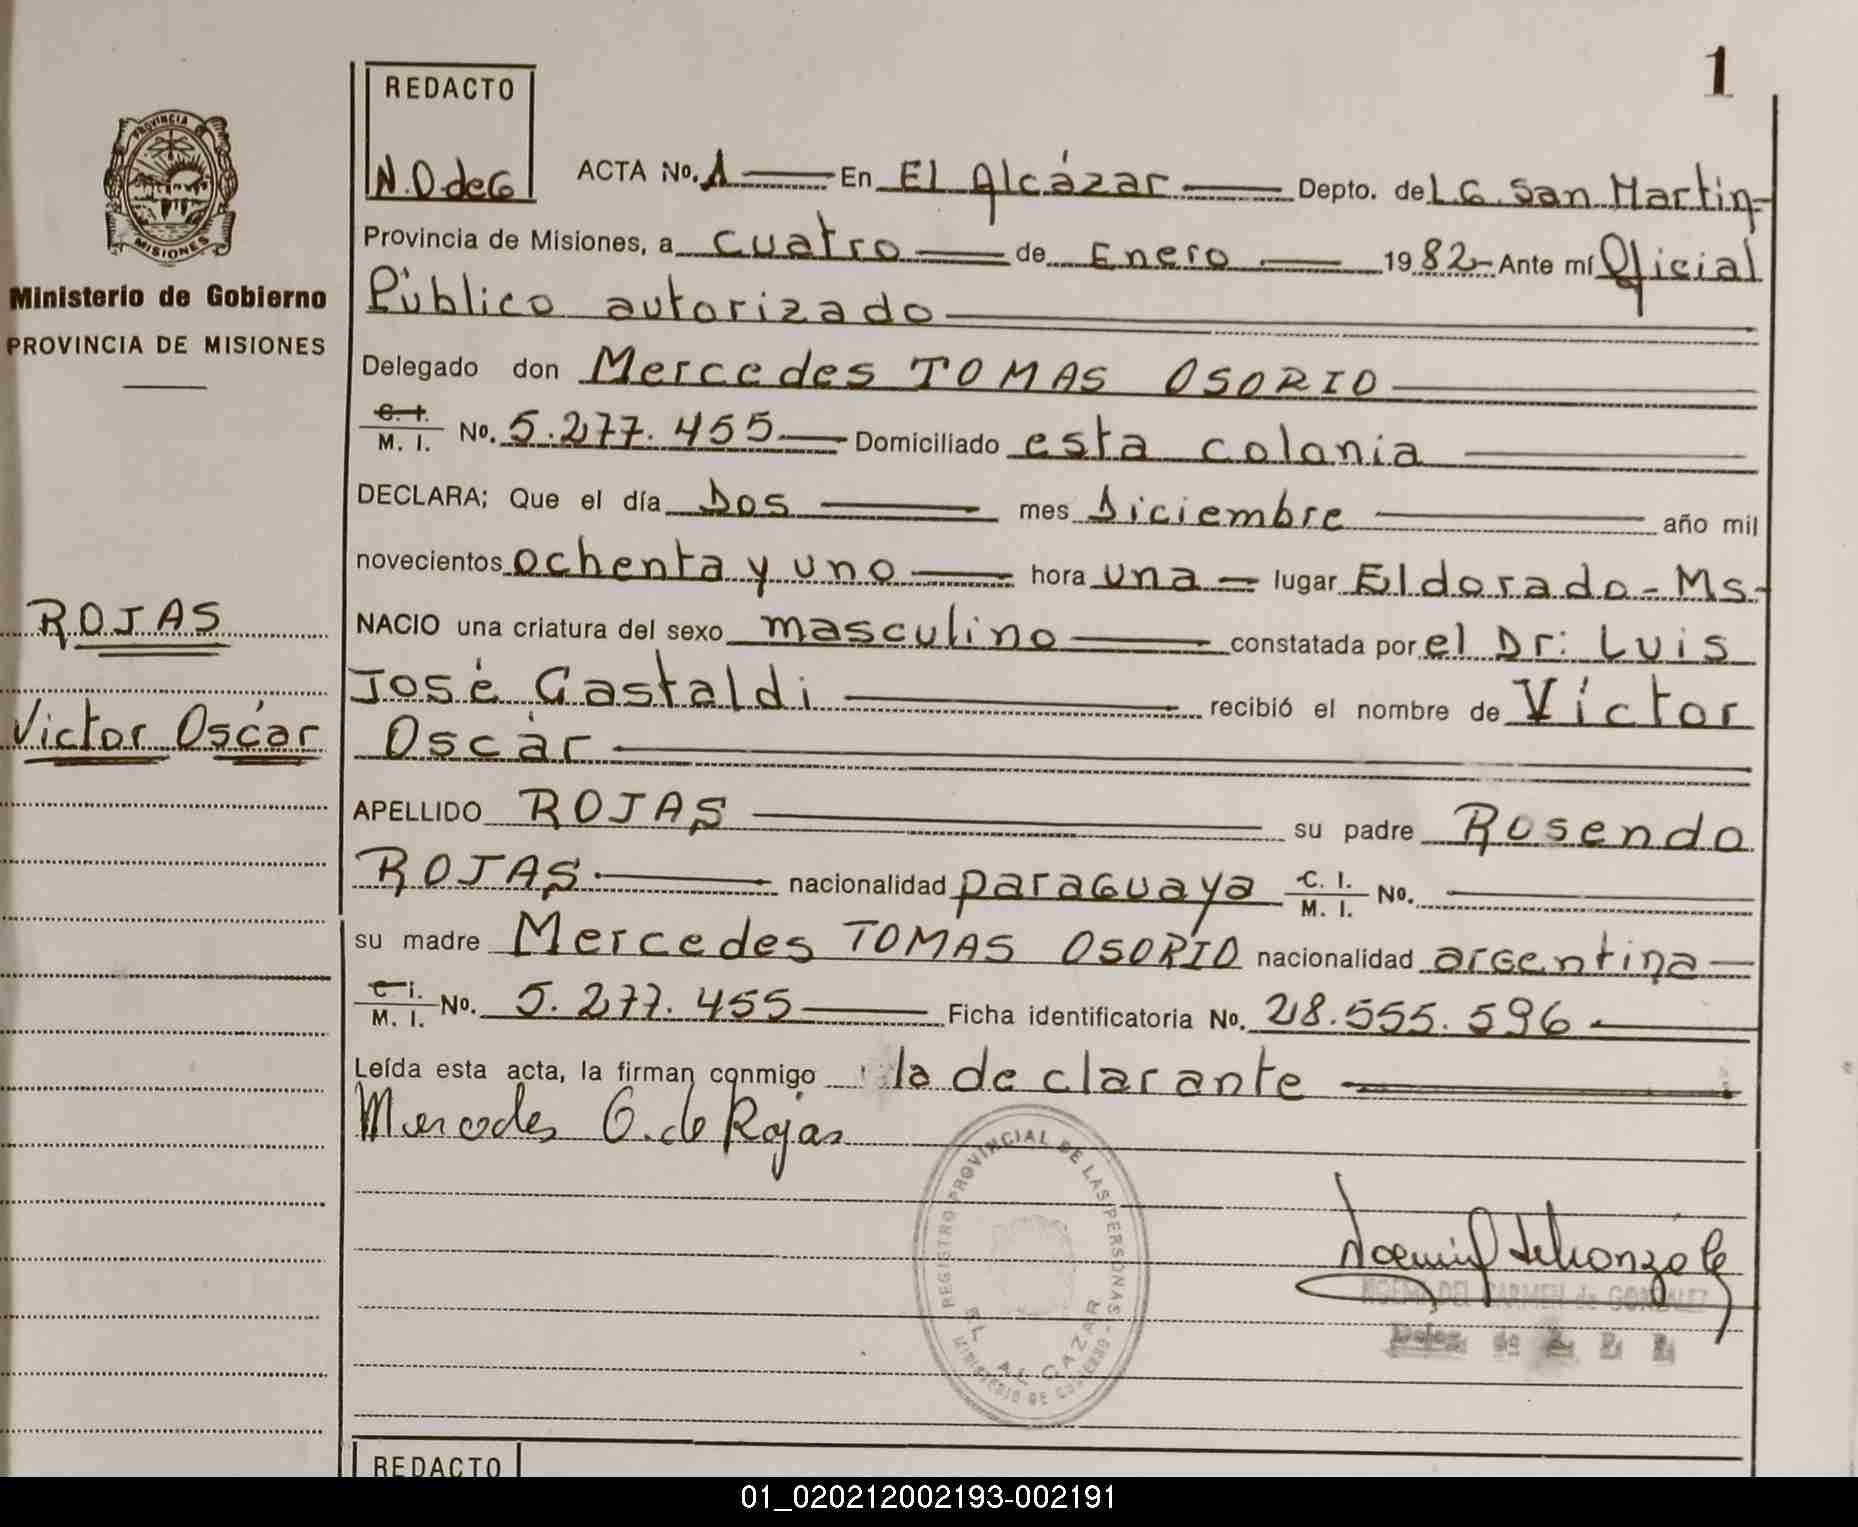 1
REDACTO
N.D de G
PROVINCIA
MISIONES
Ministerio de Gobierno
PROVINCIA DE MISIONES
ROJAS
Víctor Oscár
ACTA No. 1 En El Alcázar Depto. de L G San Martin
Provincia de Misiones, a cuatro de Enero 1982 Ante mí Oficial
Público autorizado
Delegado don Mercedes TOMAS OSORIO
C. I. / M. I. No. 5.277.455 Domiciliado esta colonia
DECLARA; Que el día Dos mes Diciembre año mil
novecientos ochenta y uno hora una lugar Eldorado - Ms-
NACIO una criatura del sexo masculino constatada por el Dr: Luis
José Gastaldi recibió el nombre de Víctor
Oscár
APELLIDO ROJAS su padre Rosendo
ROJAS nacionalidad paraguaya C. I. / M. I. No.
su madre Mercedes TOMAS OSORIO nacionalidad argentina
C. I. / M. I. No. 5.277.455 Ficha identificatoria No. 28.555.596
Leída esta acta, la firman conmigo la declarante
Mercedes O. de Rojas
REGISTRO PROVINCIAL DE LAS PERSONAS
EL ALCAZAR
MINISTERIO DE GOBIERNO
NOEMI DEL CARMEN de GONZALEZ
REDACTO
01_020212002193-002191